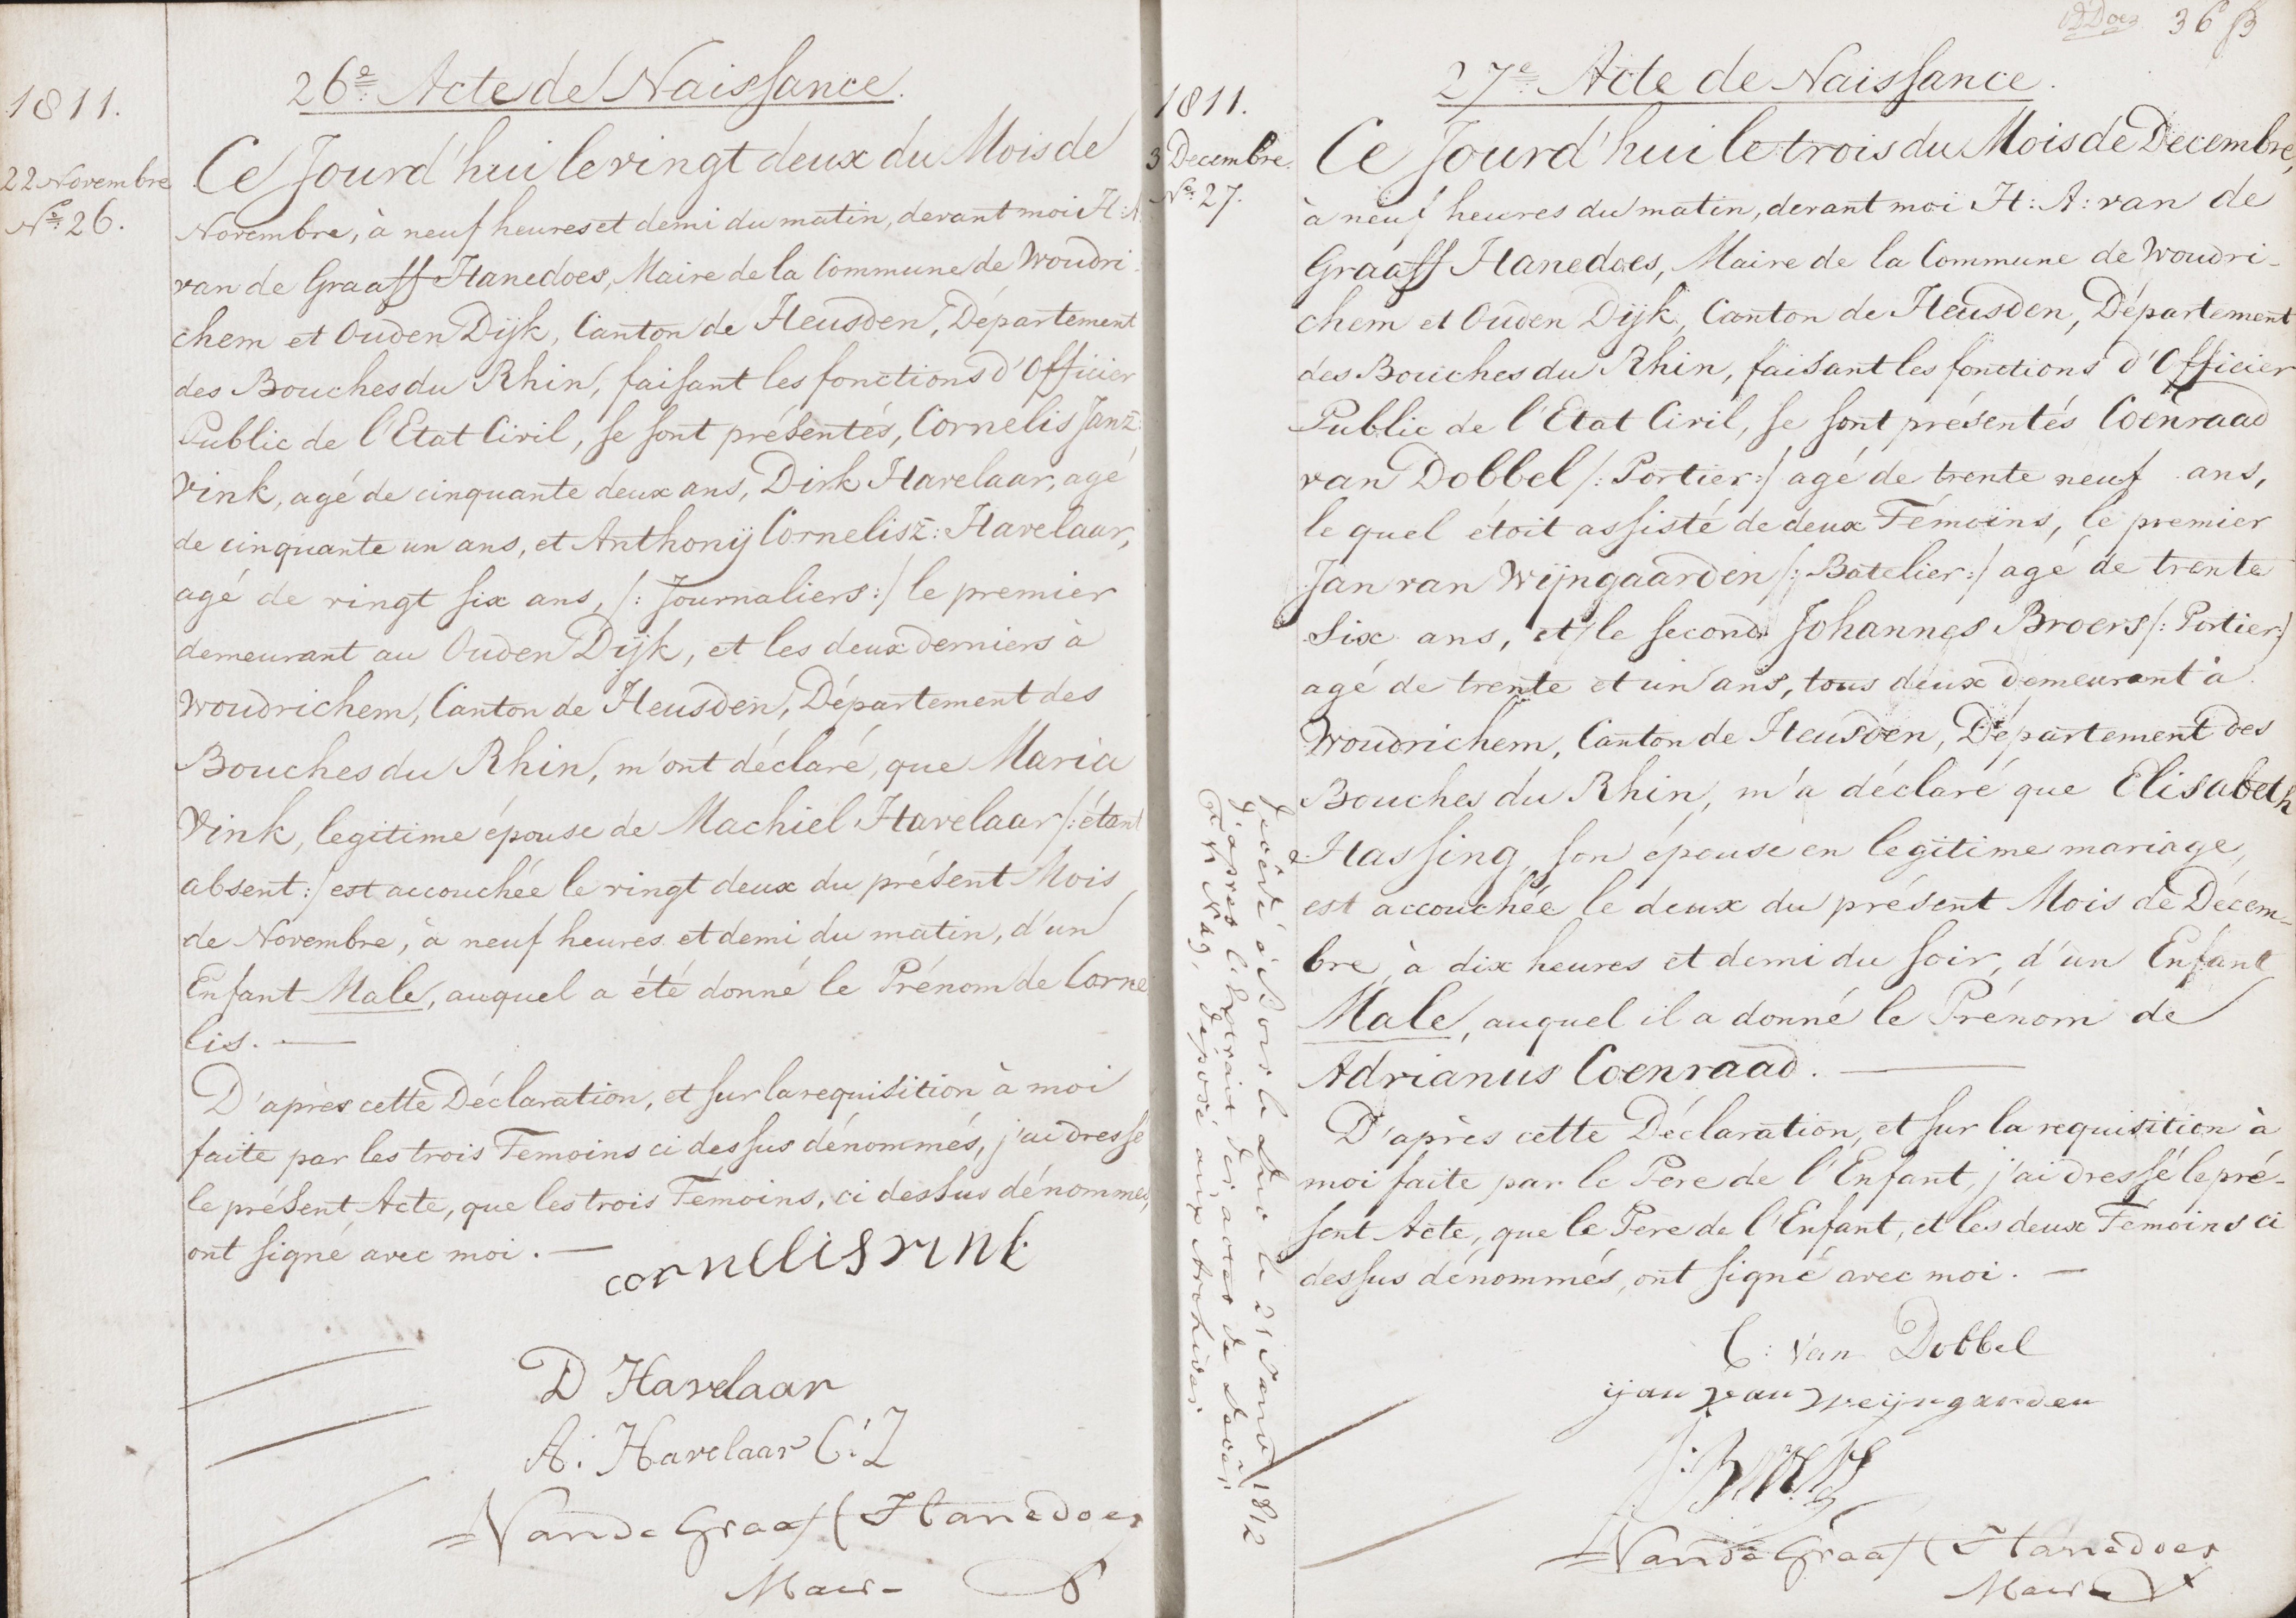 1811.
22 Novembre
No. 26.
26e Acte de Naissance.
Ce Jourd'hui le vingt deux du Mois de
Novembre, à neuf heures et demi du matin, devant moi H: A:
van de Graaff Hanedoes, Maire de la Commune de Woudri-
chem et Ouden Dijk, Canton de Heusden, Département
des Bouches du Rhin, faisant les fonctions d'Officier
Public de l'Etat Civil, se sont présentés, Cornelis Janz:
Vink, agé de cinquante deux ans, Dirk Havelaar, agé
de cinquante un ans, et Anthonij Cornelisz: Havelaar,
agé de vingt six ans, /: Journaliers :/ le premier
demeurant au Ouden Dijk, et les deux derniers à
Woudrichem, Canton de Heusden, Département des
Bouches du Rhin, m'ont déclaré, que Maria
Vink, legitime épouse de Machiel Havelaar /: étant
absent :/ est accouchée le vingt deux du présent Mois
de Novembre, à neuf heures et demi du matin, d'un
Enfant Male, auquel a été donné le Prénom de Corne
lis. —
D'après cette Déclaration, et sur la requisition à moi
faite par les trois Temoins ci dessus dénommés, j'ai dressé
le présent Acte, que les trois Témoins, ci dessus dénommés,
ont signé avec moi. —
cornelis vink
D Havelaar
A: Havelaar C:Z
Van de Graaff Hanedoes
Maire
36
1811.
3 Decembre.
No. 27.
27e Acte de Naissance.
Ce Jourd'hui le trois du Mois de Decembre,
à neuf heures du matin, devant moi H: A: van de
Graaff Hanedoes, Maire de la Commune de Woudri-
chem et Ouden Dijk, Canton de Heusden, Département
des Bouches du Rhin, faisant les fonctions d'Officier
Public de l'Etat Civil, se sont présentés Coenraad
van Dobbel /: Portier :/ agé de trente neuf ans,
le quel étoit assisté de deux Témoins, le premier
Jan van Wijngaarden /: Batelier :/ agé de trente
Six ans, et le second Johannes Broers /: Portier :/
agé de trente et un ans, tous deux demeurant à
Woudrichem, Canton de Heusden, Département des
Bouches du Rhin, m'a déclaré que Elisabeth
Hassing, son épouse en legitime mariage,
est accouchée le deux du présent Mois de Décem-
bre, à dix heures et demi du soir, d'un Enfant
Male, auquel il a donné le Prénom de
Adrianus Coenraad. —
D'après cette Déclaration, et sur la requisition à
moi faite par le Pere de l'Enfant, j'ai dressé le pré-
sent Acte, que le Pere de l'Enfant, et les deux Témoins ci
dessus dénommés, ont signé avec moi. —
C: van Dobbel
ijan van Weijngaarden
J: Broers
Van de Graaff Hanedoes
Maire
Decédé à Bois le Duc le 21 1812
d'apres l'Extrait des actes de Decès,
déposé aux Archives.